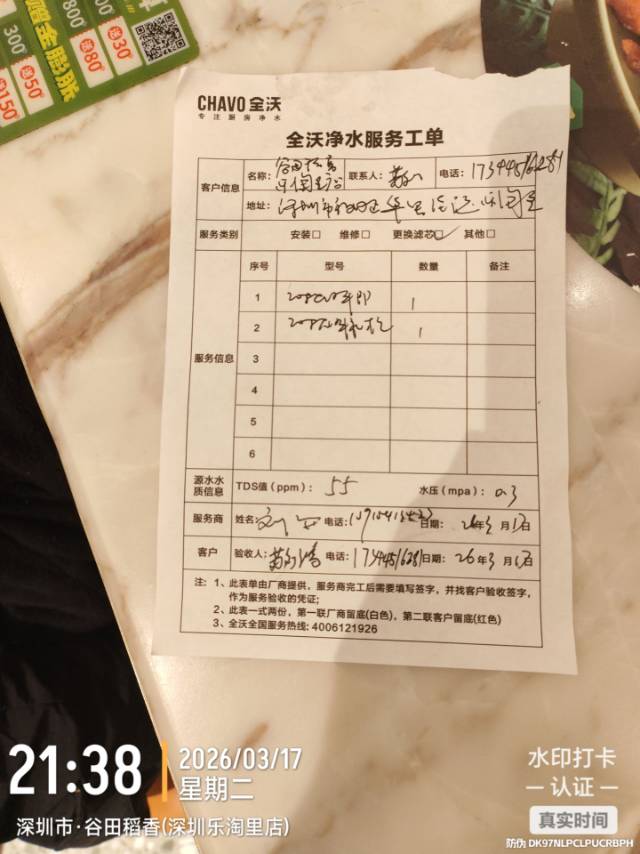 300
800
送30
送80
150
送50
赠金膨胀
CHAVO 全沃
专注厨房净水
全沃净水服务工单
客户信息 名称: 谷田稻香 联系人: 电话: 17344516281
地址: 深圳市
服务类别 安装□ 维修□ 更换滤芯□✓ 其他□
服务信息 序号 型号 数量 备注
1 1
2 1
3
4
5
6
源水水质信息 TDS值(ppm): 55 水压(mpa): 0.3
服务商 姓名: 刘 电话: 日期: 26年3月17日
客户 验收人: 电话: 17344516281 日期: 26年3月17日
注: 1、此表单由厂商提供,服务商完工后需要填写签字,并找客户验收签字,
作为服务验收的凭证;
2、此表一式两份,第一联厂商留底(白色),第二联客户留底(红色)
3、全沃全国服务热线: 4006121926
21:38
2026/03/17
星期二
深圳市·谷田稻香(深圳乐淘里店)
水印打卡
认证
真实时间
防伪 DK97NLPCLPUCRBPH